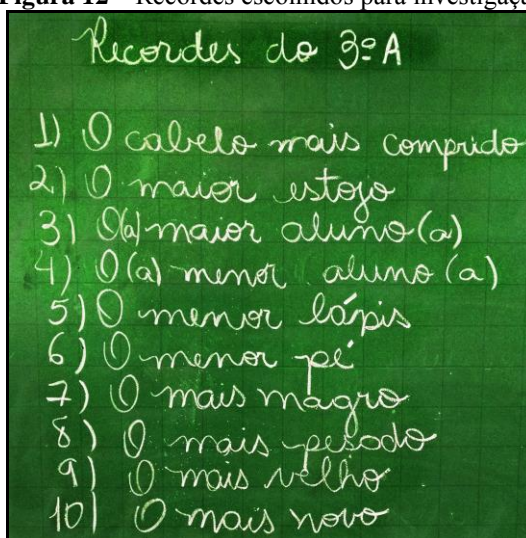 Figura 12 – Recordes escolhidos para investigaçã
Recordes do 3º A
1) O cabelo mais comprido
2) O maior estojo
3) O(a) maior aluno(a)
4) O(a) menor aluno (a)
5) O menor lápis
6) O menor pé
7) O mais magro
8) O mais pesado
9) O mais velho
10) O mais novo